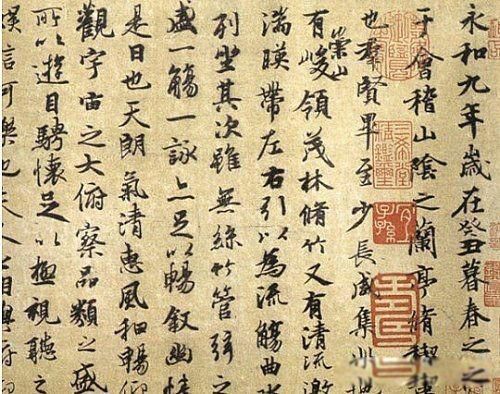 永和九年歲在癸丑暮春之
于會稽山陰之蘭亭脩禊
也群賢畢至少長咸集此地
有崇山峻領茂林脩竹又有清流激
湍暎帶左右引以為流觴曲水
列坐其次雖無絲竹管弦之
盛一觴一詠亦足以暢叙幽情
是日也天朗氣清惠風和暢仰
觀宇宙之大俯察品類之盛
所以遊目騁懷足以極視聽之
娛信可樂也夫人之相與俯仰
三希堂精鑑璽
宜子孫